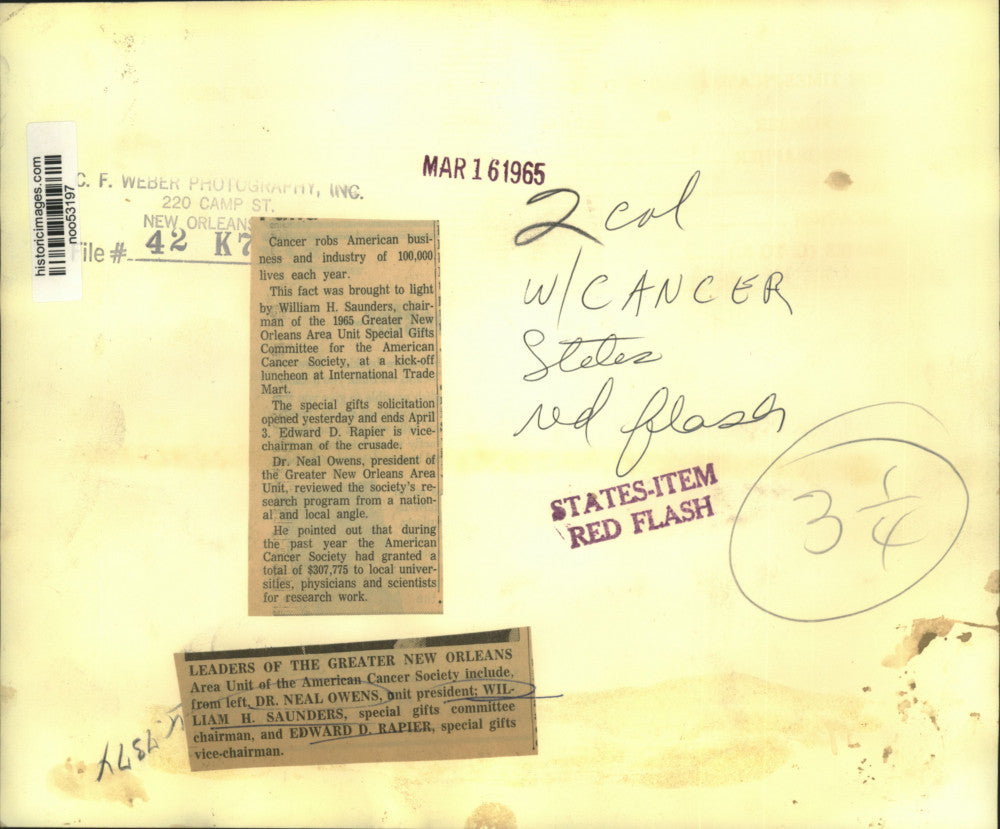 historicimages.com
noo53197
C. F. WEBER PHOTOGRAPHY, INC.
220 CAMP ST.
NEW ORLEANS
File #. 42 K7
MAR 16 1965
2 col
W/CANCER
States
red flash
STATES-ITEM
RED FLASH
3 1/4
Cancer robs American busi-
ness and industry of 100,000
lives each year.
This fact was brought to light
by William H. Saunders, chair-
man of the 1965 Greater New
Orleans Area Unit Special Gifts
Committee for the American
Cancer Society, at a kick-off
luncheon at International Trade
Mart.
The special gifts solicitation
opened yesterday and ends April
3. Edward D. Rapier is vice-
chairman of the crusade.
Dr. Neal Owens, president of
the Greater New Orleans Area
Unit, reviewed the society's re-
search program from a nation-
al and local angle.
He pointed out that during
the past year the American
Cancer Society had granted a
total of $307,775 to local univer-
sities, physicians and scientists
for research work.
LEADERS OF THE GREATER NEW ORLEANS
Area Unit of the American Cancer Society include,
from left, DR. NEAL OWENS, unit president; WIL-
LIAM H. SAUNDERS, special gifts committee
chairman, and EDWARD D. RAPIER, special gifts
vice-chairman.